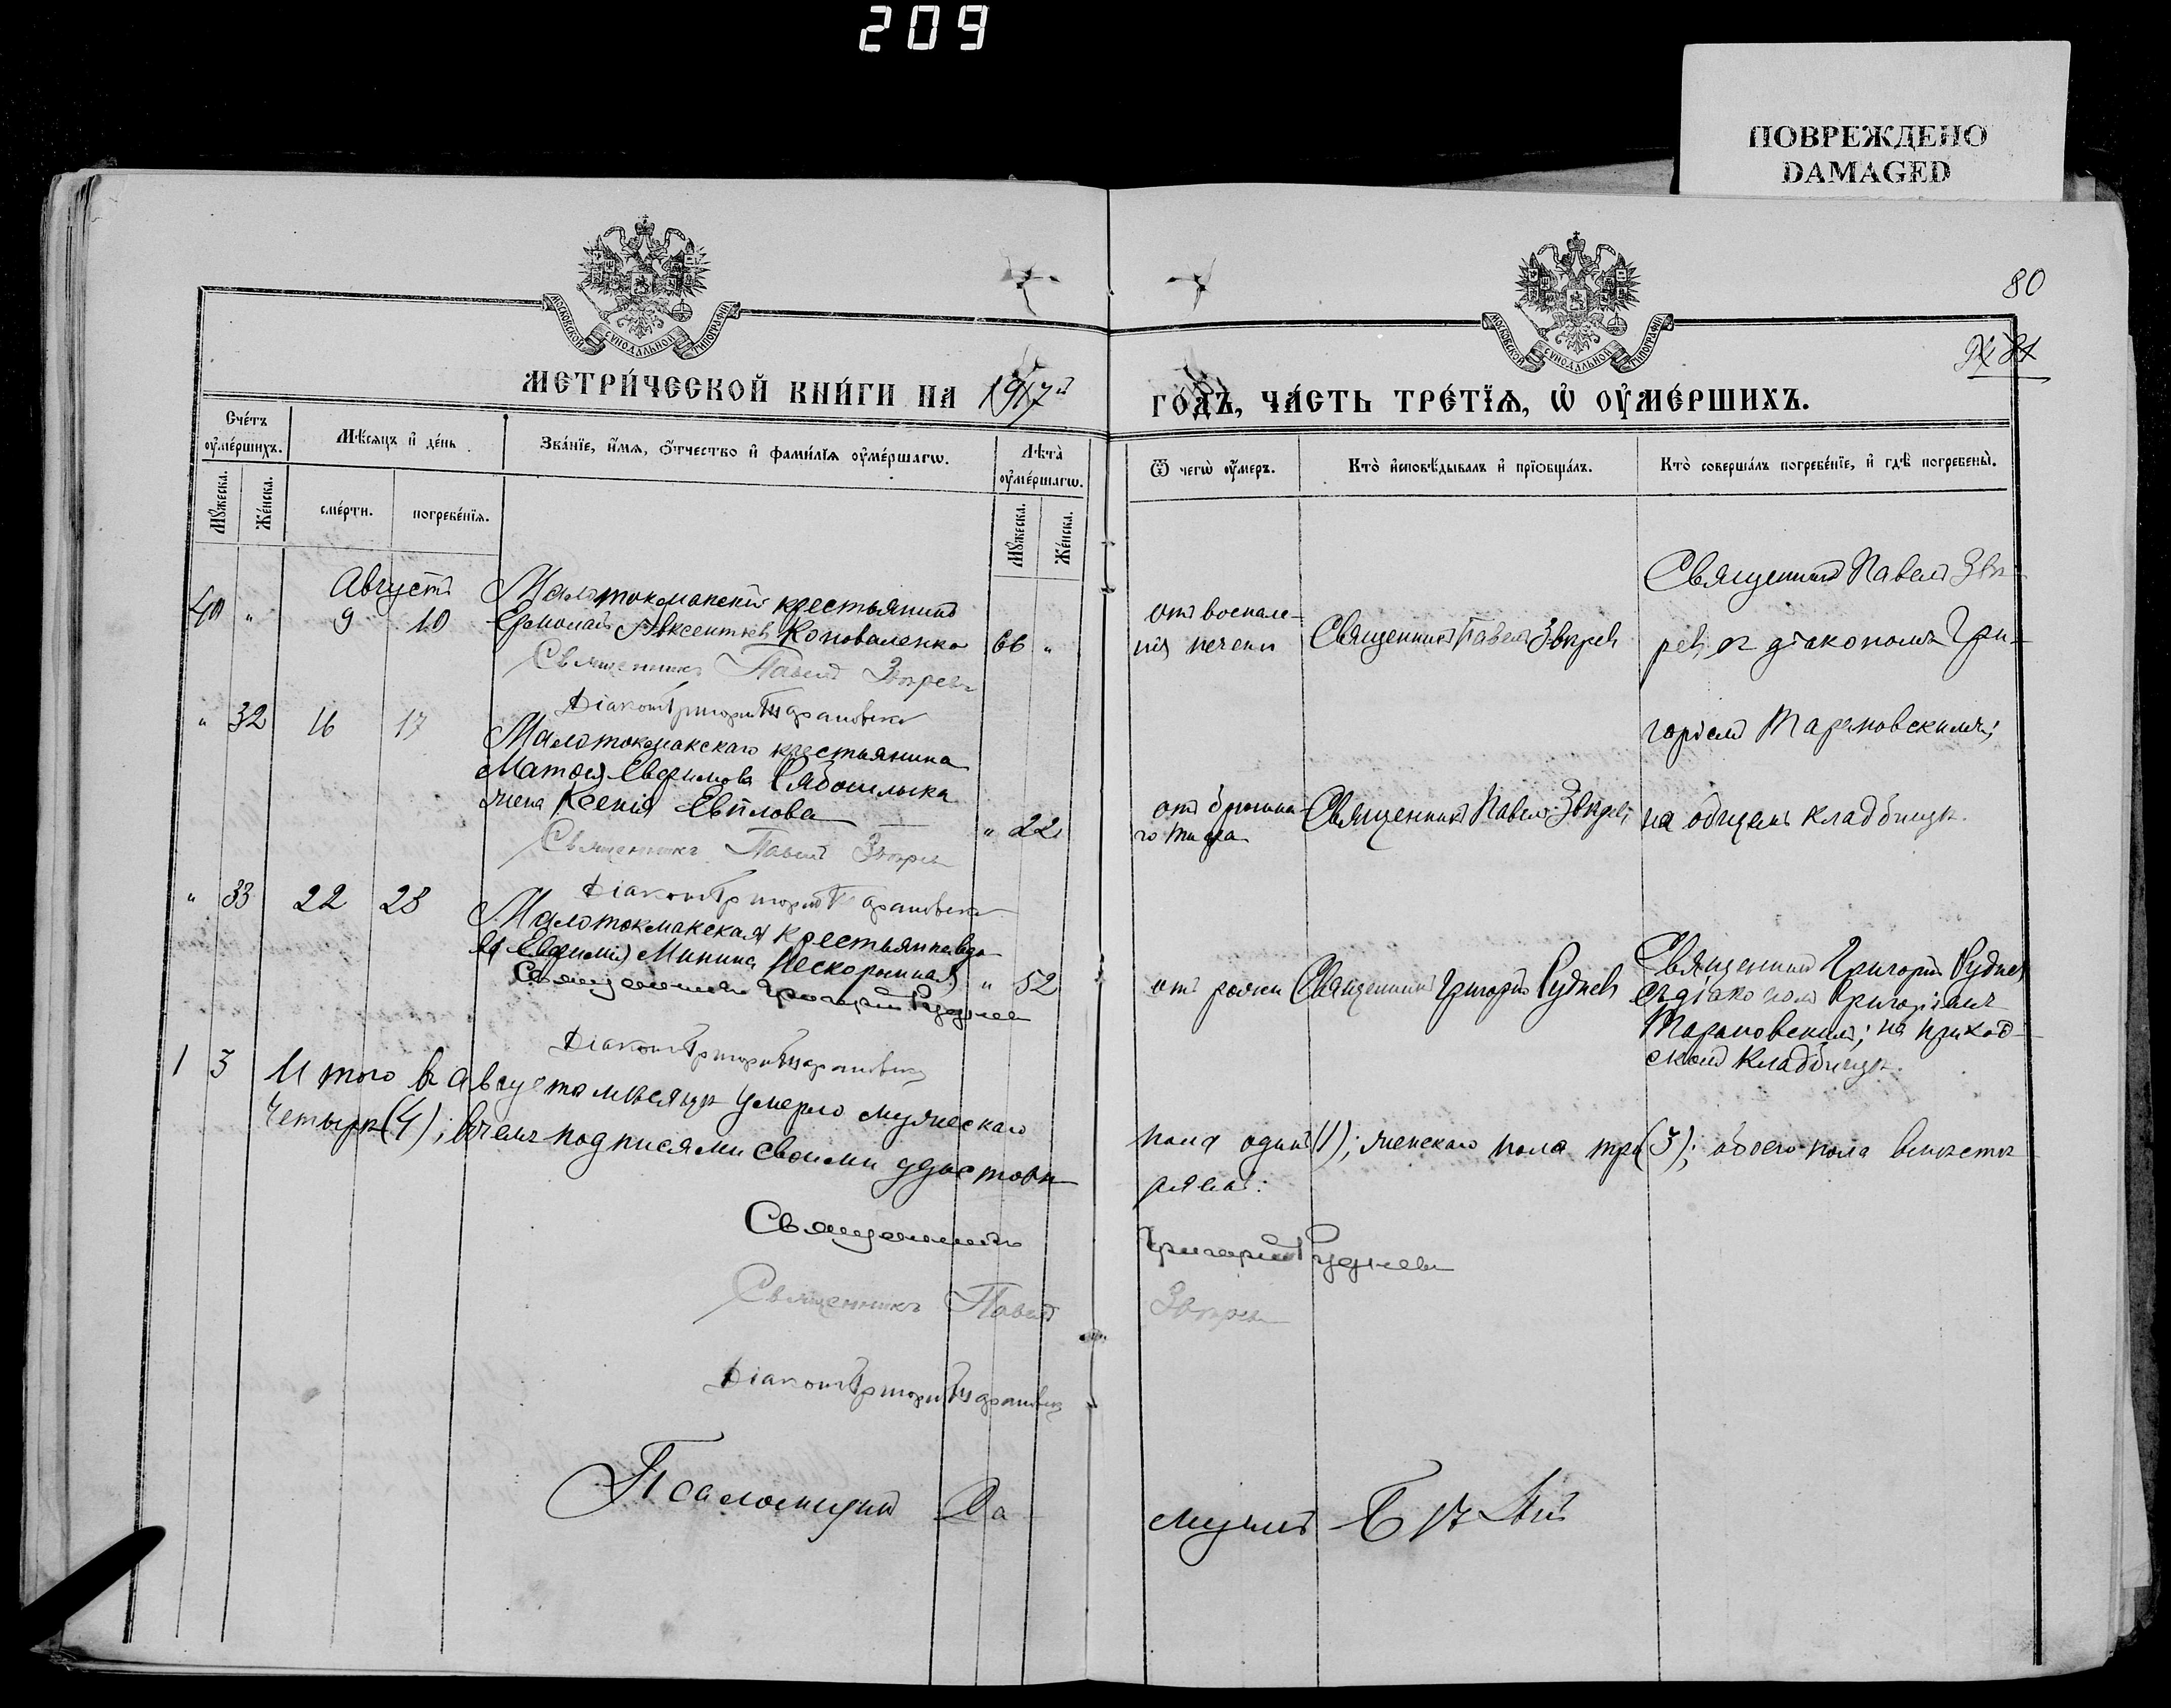 209
ПОВРЕЖДЕНО
DAMAGED
80
МОСКОВСКОЙ СѴНОДАЛЬНОЙ ТИПОГРАФІИ
МОСКОВСКОЙ СѴНОДАЛЬНОЙ ТИПОГРАФІИ
МЕТРИ́ЧЕСКОЙ КНИ́ГИ НА 1917й
ГО́ДЪ, ЧА́СТЬ ТРЕ́ТІѦ, Ѡ ОУ҆МЕ́РШИХЪ.
Сче́тъ оу҆ме́ршихъ.
Мꙋ́жеска.
Же́нска.
Мѣ́сяцъ и҆ де́нь
сме́рти.
погребе́нїѧ.
Зва́нїе, и҆́мѧ, ѻ҆́тчество и҆ фами́лїѧ оу҆ме́ршагѡ.
Лѣ́та оу҆ме́ршагѡ.
Мꙋ́жеска.
Же́нска.
Ѿ чегѡ̀ оу҆́меръ.
Кто̀ и҆сповѣ́дывалъ и҆ прїѡбща́лъ.
Кто̀ соверша́лъ погребе́нїе, и҆ гдѣ̀ погребены̀.
Августъ
40 " 9 10 Малотокмакскій крестьянинъ
Ермолай Авксентіевъ Коноваленко 66 "
Священникъ Павелъ Звѣревъ
Діаконъ Григорій Тарановскій
отъ воспале-
нія печени
Священникъ Павелъ Звѣревъ
Священникъ Павелъ Звѣ-
ревъ съ діакономъ Гри-
горіемъ Тарановскимъ;
на общемъ кладбищѣ.
" 32 16 17 Малотокмакскаго крестьянина
Матѳея Евфимова
жена Ксенія " 22
Священникъ Павелъ Звѣревъ
Діаконъ Григорій Тарановскій
отъ брюшна-
го тифа
Священникъ Павелъ Звѣревъ
" 33 22 23 Малотокмакская крестьянка вдо-
ва Евфимія Минина Нескоромная " 52
Священникъ Григорій Рудневъ
Діаконъ Григорій Тарановскій
отъ рожи
Священникъ Григорій Рудневъ
Священникъ Григорій Рудневъ
съ діакономъ Григоріемъ
Тарановскимъ; на приход-
скомъ кладбищѣ.
1 3 Итого въ августѣ мѣсяцѣ умерло мужескаго
пола одинъ (1); женскаго пола три (3); обоего пола вмѣстѣ
четыре (4); въ чемъ подписями своими удостовѣ-
ряемъ:
Священникъ Григорій Рудневъ
Священникъ Павелъ Звѣревъ
Діаконъ Григорій Тарановскій
Псаломщикъ Са-
муилъ